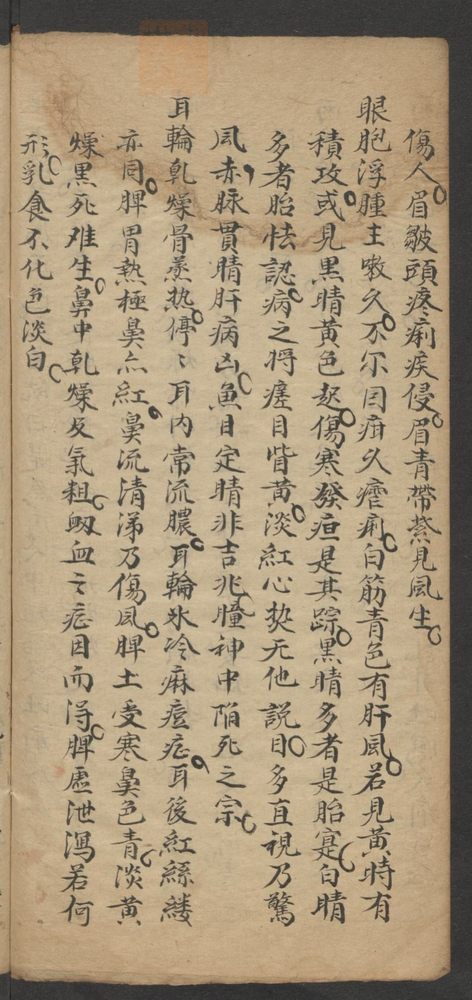 傷人。眉皺頭疼痢疾侵。眉青帶縈見風生。
眼胞浮腫主嗽久。不尔因疳久瘧痢。白筋青色有肝風。若見黃時有
積攻。或見黑睛黃色起。傷寒發疸是其踪。黑睛多者是胎寔。白睛
多者胎怯認。病之将瘥目眥黃。淡紅心契无他說。目多直視乃驚
風。赤脉貫睛肝病凶。魚目定睛非吉兆。瞳神中陷死之宗。
耳輪乾燥骨蒸热。停〻耳内常流膿。耳輪氷冷麻痘症。耳後紅絲縷
亦同。脾胃熱極鼻亦紅。鼻流清涕乃傷風。脾土受寒鼻色青。淡黃
燥黑死难生。鼻中乾燥及氣粗。衂血之症因而淂。脾虛泄瀉若何
形。乳食不化色淡白。